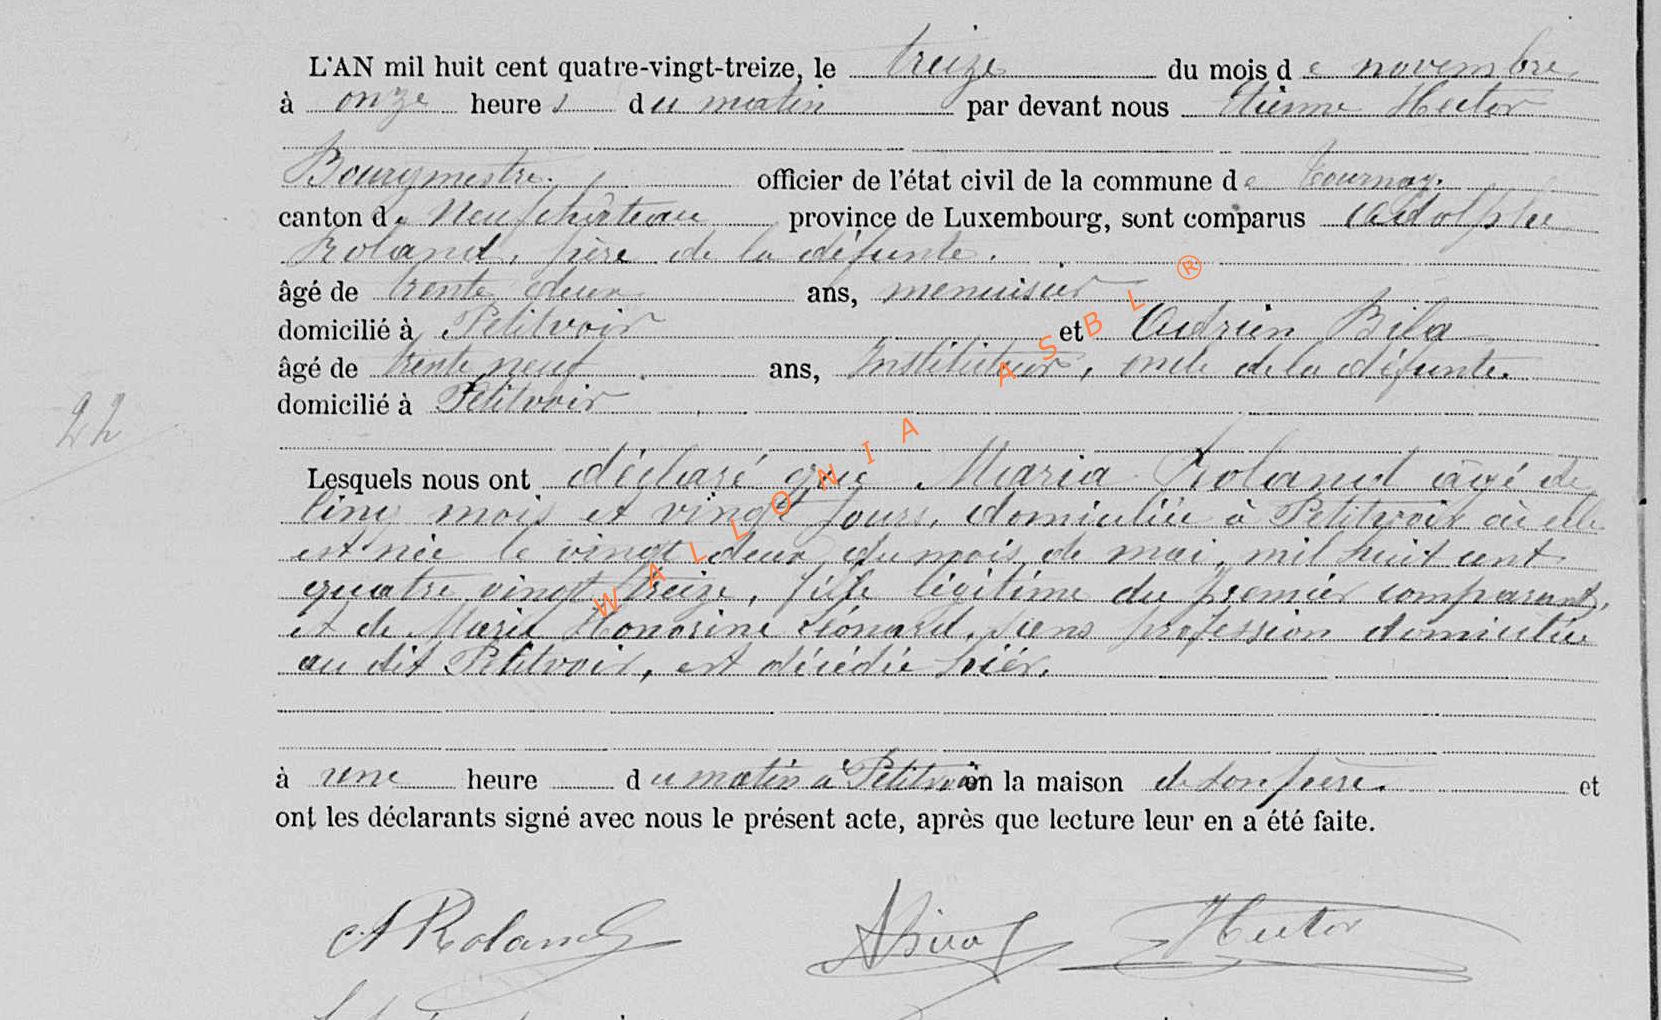 L'AN mil huit cent quatre-vingt-treize, le treize du mois de novembre
à onze heures du matin par devant nous Etienne Hector
Bourgmestre. officier de l'état civil de la commune de Tournay.
canton de Neufchâteau province de Luxembourg, sont comparus Adolphe
Roland, père de la défunte.
âgé de trente deux ans, menuisier
domicilié à Petitvoir et Adrien
âgé de trente neuf ans, Instituteur, oncle de la défunte.
domicilié à Petitvoir
22
Lesquels nous ont déclaré que Maria Roland âgé de
cinq mois et vingt jours, domiciliée à Petitvoir où elle
est née le vingt deux du mois de mai, mil huit cent
quatre vingt treize, fille légitime du premier comparant,
et de Marie Honorine Léonard, sans profession domiciliée
au dit Petitvoir, est décédée hier,
à une heure du matin à Petitvoir en la maison de son père. et
ont les déclarants signé avec nous le présent acte, après que lecture leur en a été faite.
A Roland Hector
WALLONIA ASBL ®